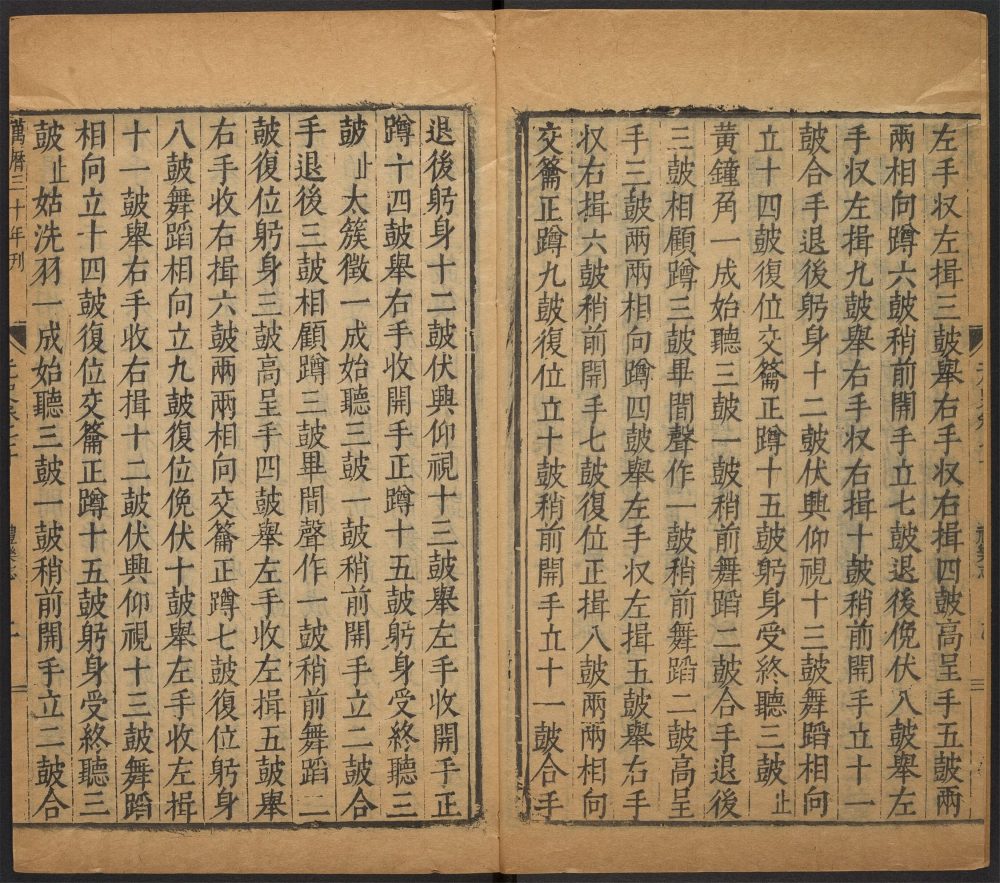 左手収左揖三鼓舉右手収右揖四鼓高呈手五鼓兩
兩相向蹲六鼓稍前開手立七鼓退後俛伏八鼓舉左
手収左揖九鼓舉右手収右揖十鼓稍前開手立十一
鼓合手退後躬身十二鼓伏興仰視十三鼓舞蹈相向
立十四鼓復位交籥正蹲十五鼓躬身受終聽三鼓止
黄鐘角一成始聽三鼓一鼓稍前舞蹈二鼓合手退後
三鼓相顧蹲三鼓畢間聲作一鼓稍前舞蹈二鼓高呈
手三鼓兩兩相向蹲四鼓舉左手収左揖五鼓舉右手
収右揖六鼓稍前開手七鼓復位正揖八鼓兩兩相向
交籥正蹲九鼓復位立十鼓稍前開手立十一鼓合手
退後躬身十二鼓伏興仰視十三鼓舉左手收開手正
蹲十四鼓舉右手收開手正蹲十五鼓躬身受終聽三
鼓止太簇徵一成始聽三鼓一鼓稍前開手立二鼓合
手退後三鼓相顧蹲三鼓畢間聲作一鼓稍前舞蹈二
鼓復位躬身三鼓高呈手四鼓舉左手收左揖五鼓舉
右手收右揖六鼓兩兩相向交籥正蹲七鼓復位躬身
八鼓舞蹈相向立九鼓復位俛伏十鼓舉左手收左揖
十一鼓舉右手收右揖十二鼓伏興仰視十三鼓舞蹈
相向立十四鼓復位交籥正蹲十五鼓躬身受終聽三
鼓止姑洗羽一成始聽三鼓一鼓稍前開手立二鼓合
萬曆三十年刊